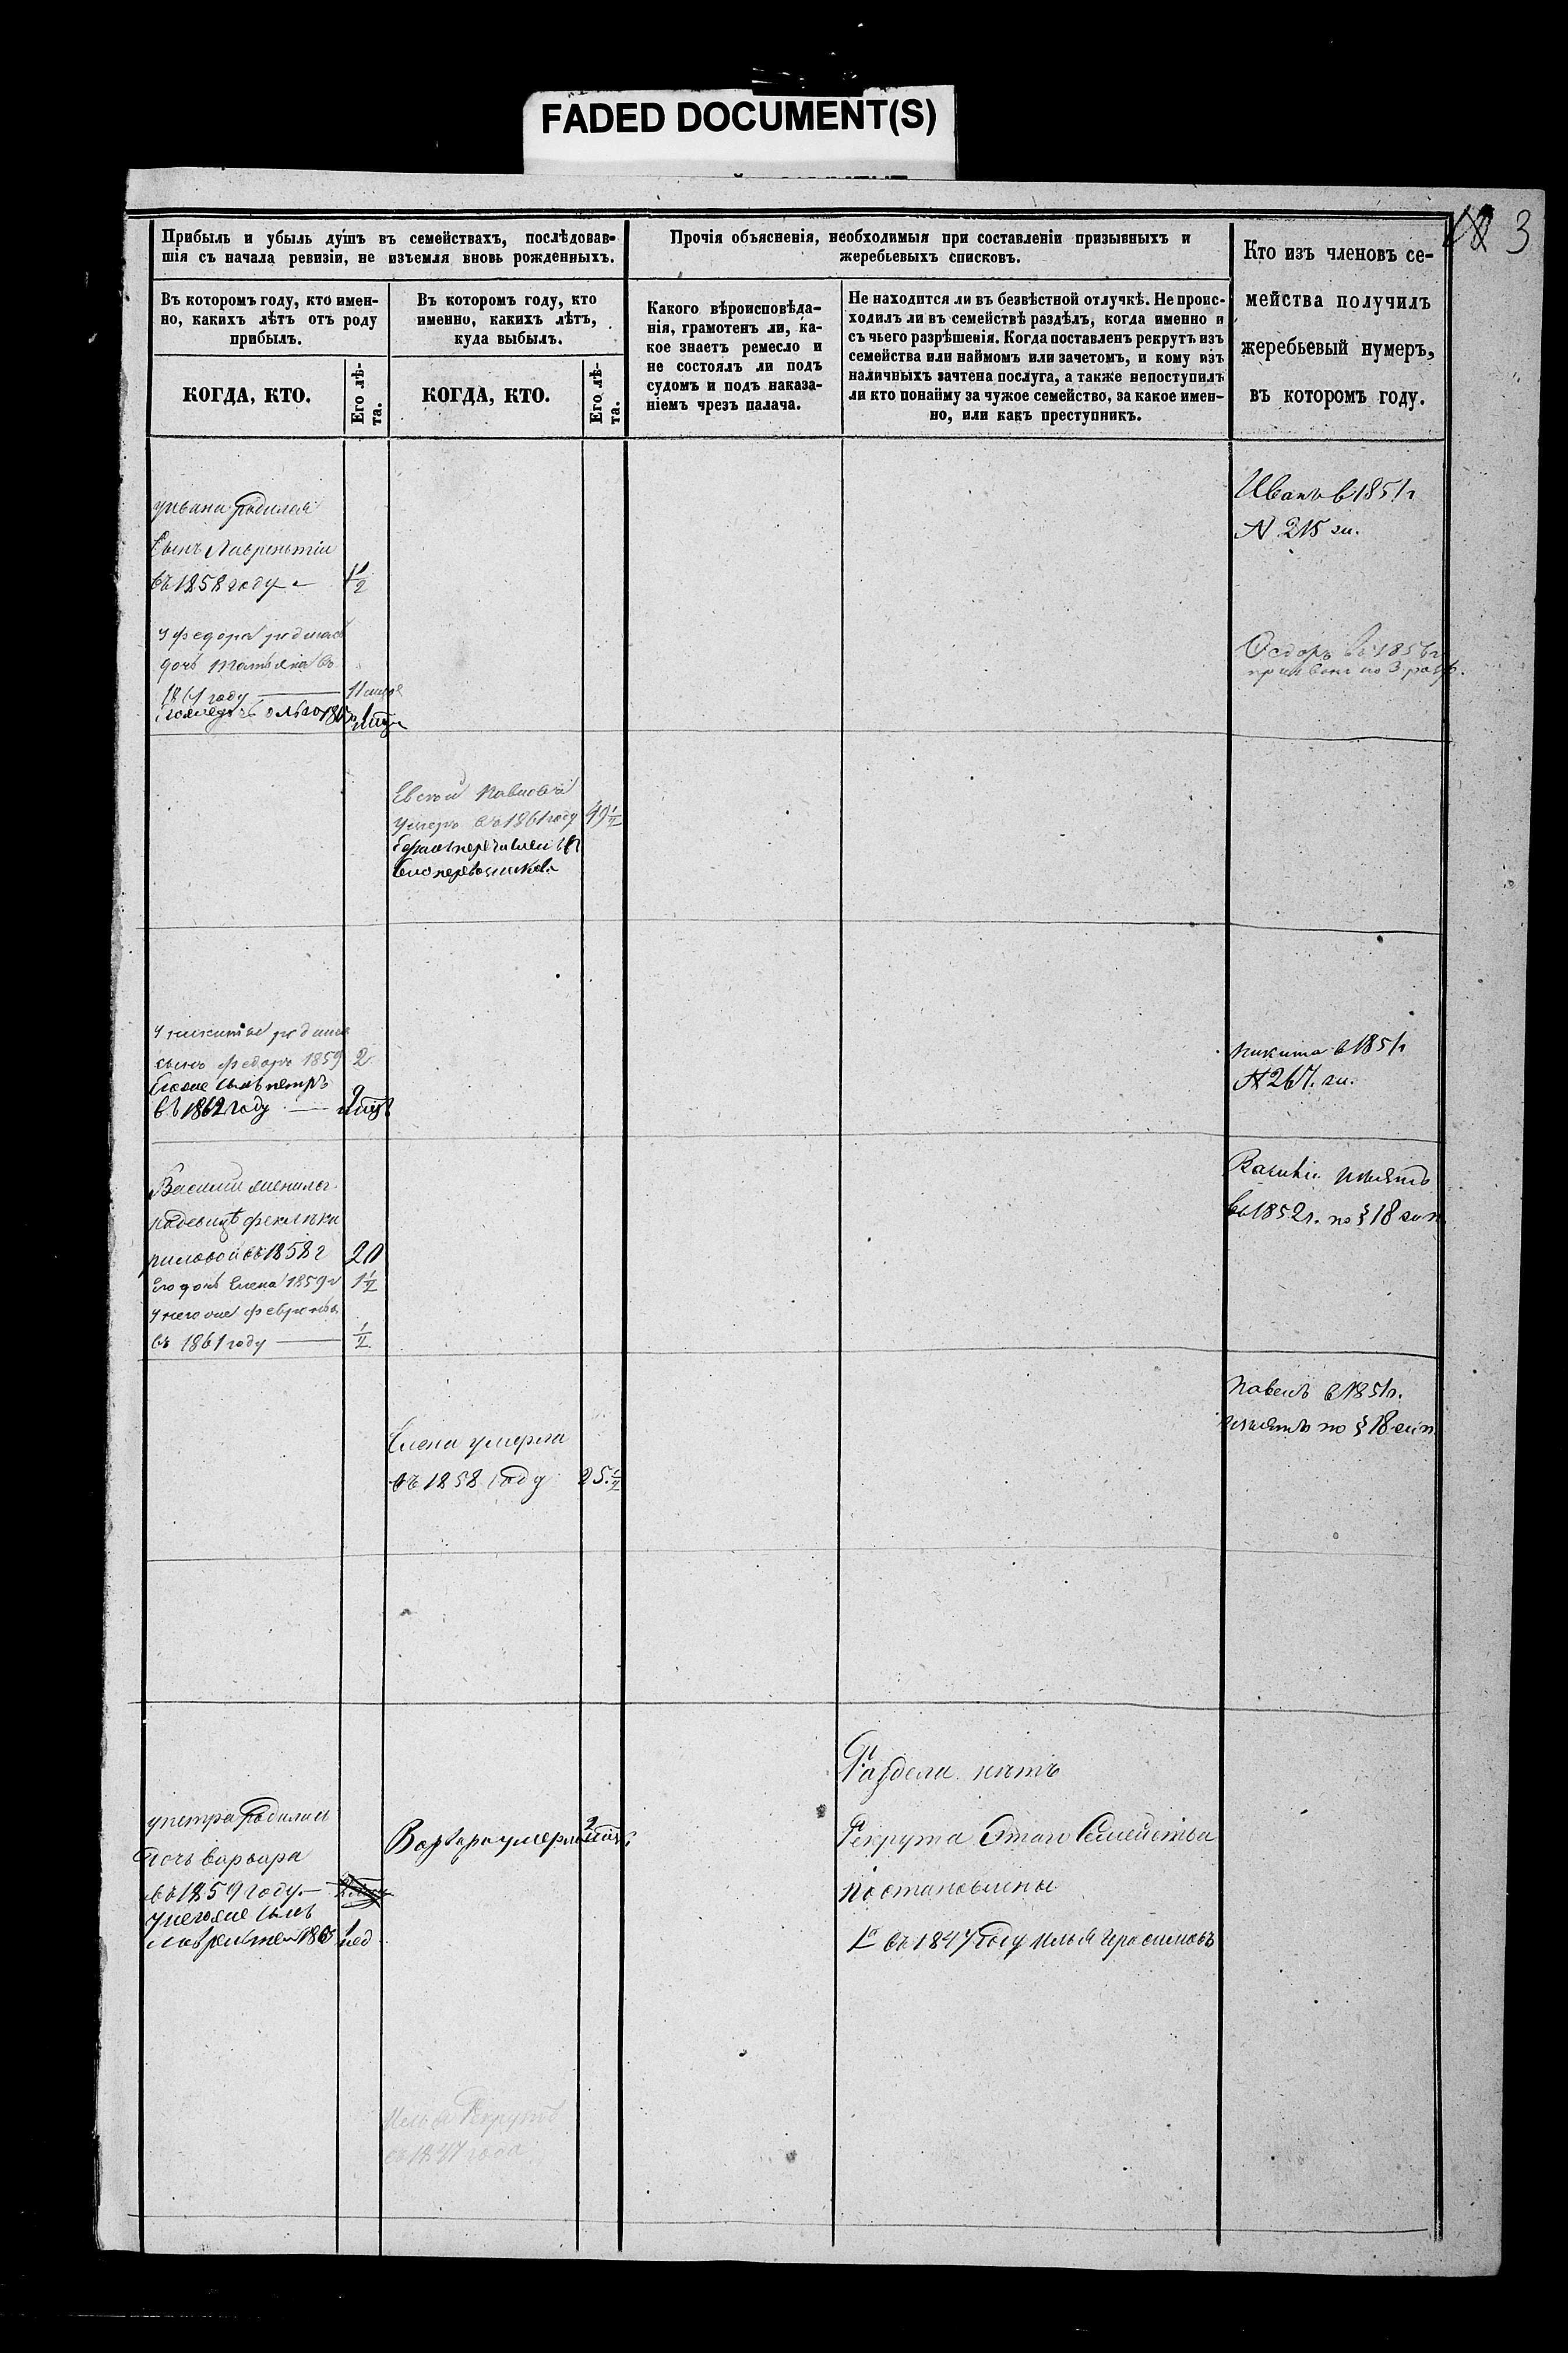 FADED DOCUMENT(S)
3
Прибыль и убыль душъ въ семействахъ, послѣдовав-
шія съ начала ревизіи, не изъемля вновь рожденныхъ.
Въ которомъ году, кто имен-
но, какихъ лѣтъ отъ роду
прибылъ.
КОГДА, КТО.
Его лѣ-
та.
Въ которомъ году, кто
именно, какихъ лѣтъ,
куда выбылъ.
КОГДА, КТО.
Его лѣ-
та.
Прочія объясненія, необходимыя при составленіи призывныхъ и
жеребьевыхъ списковъ.
Какого вѣроисповѣда-
нія, грамотенъ ли, ка-
кое знаетъ ремесло и
не состоялъ ли подъ
судомъ и подъ наказа-
ніемъ чрезъ палача.
Не находится ли въ безвѣстной отлучкѣ. Не проис-
ходилъ ли въ семействѣ раздѣлъ, когда именно и
съ чьего разрѣшенія. Когда поставленъ рекрутъ изъ
семейства или наймомъ или зачетомъ, и кому изъ
наличныхъ зачтена послуга, а также непоступилъ
ли кто понайму за чужое семейство, за какое имен-
но, или какъ преступникъ.
Кто изъ членовъ се-
мейства получилъ
жеребьевый нумеръ,
въ которомъ году.
Иванъ в 1851 г
N 215
Сынъ Лаврентій
въ 1858 году
1/2
у Федора родилась
дочь Татьяна въ
1861 году
Федоръ въ
по 3
Павлова
умеръ въ 1861 году 49 1/2
у Никиты родился
сынъ Федоръ 1859 2
сынъ Петръ
въ 1862 году
Никита в 1851 г
N 267.
Василій женился
на девицѣ Феклѣ
въ 1858 г 20
его дочь Елена 1859 г 1 1/2
у него
въ 1861 году 1/2
Василій изъятъ
въ 1852 г. по § 18
Павелъ в 1851 г.
изъятъ по § 18
Елена умерла
въ 1858 году 25. 1/2
Раздела нѣтъ
у Петра родилась
дочь Варвара
въ 1859 году
у него же сынъ
Варвара умерла
Рекрута Этого Семейства
постановлены
1е въ 1847 году Илья Герасимовъ
Илья Рекрутъ
въ 1847 года